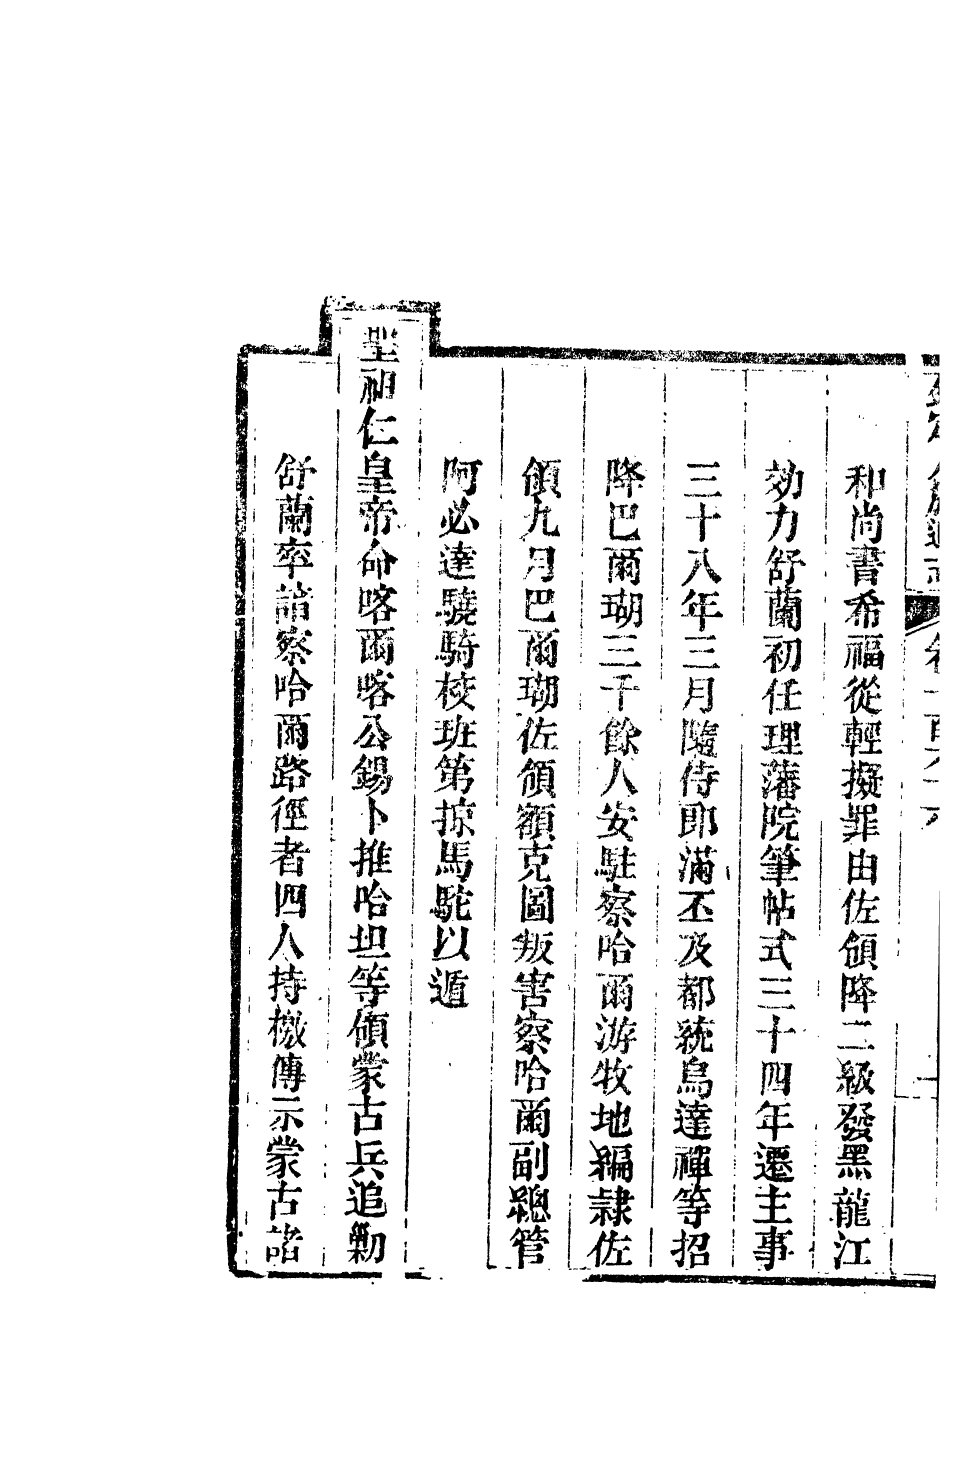 和尚書希福從輕擬罪由佐領降二級發黑龍江
効力舒蘭初任理藩院筆帖式三十四年遷主事
三十八年三月隨侍郎滿丕及都統烏達禪等招
降巴爾瑚三千餘人安駐察哈爾游牧地編隷佐
領九月巴爾瑚佐領額克圖叛害察哈爾副總管
阿必達驍騎校班第掠馬駝以遁
聖祖仁皇帝命喀爾喀公錫卜推哈坦等領蒙古兵追勦
舒蘭率諳察哈爾路徑者四人持檄傳示蒙古諸